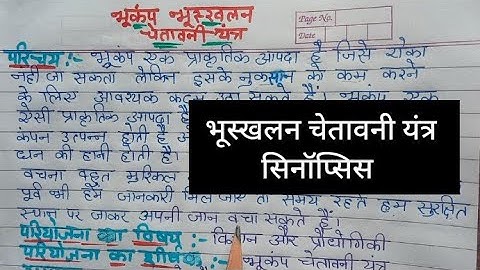 भूकंप भूस्खलन
चेतावनी यंत्र
Page No.
Date
परिचय:- भूकंप एक प्राकृतिक आपदा है जिसे रोका
नहीं जा सकता लेकिन इसके नुकसान को कम करने
के लिए आवश्यक कदम उठा सकते हैं। भूकंप एक
ऐसी प्राकृतिक आपदा है
कंपन उत्पन्न होती है
दान की हानी होती है।
बचना बहुत मुश्किल
पूर्व भी हमें जानकारी मिल जाए तो समय रहते हम सुरक्षित
स्थान पर जाकर अपनी जान बचा सकते हैं।
भूस्खलन चेतावनी यंत्र
सिनॉप्सिस
परियोजना का विषय:- विज्ञान और प्रौद्योगिकी
परियोजना का शीर्षक:- भूकंप चेतावनी यंत्र